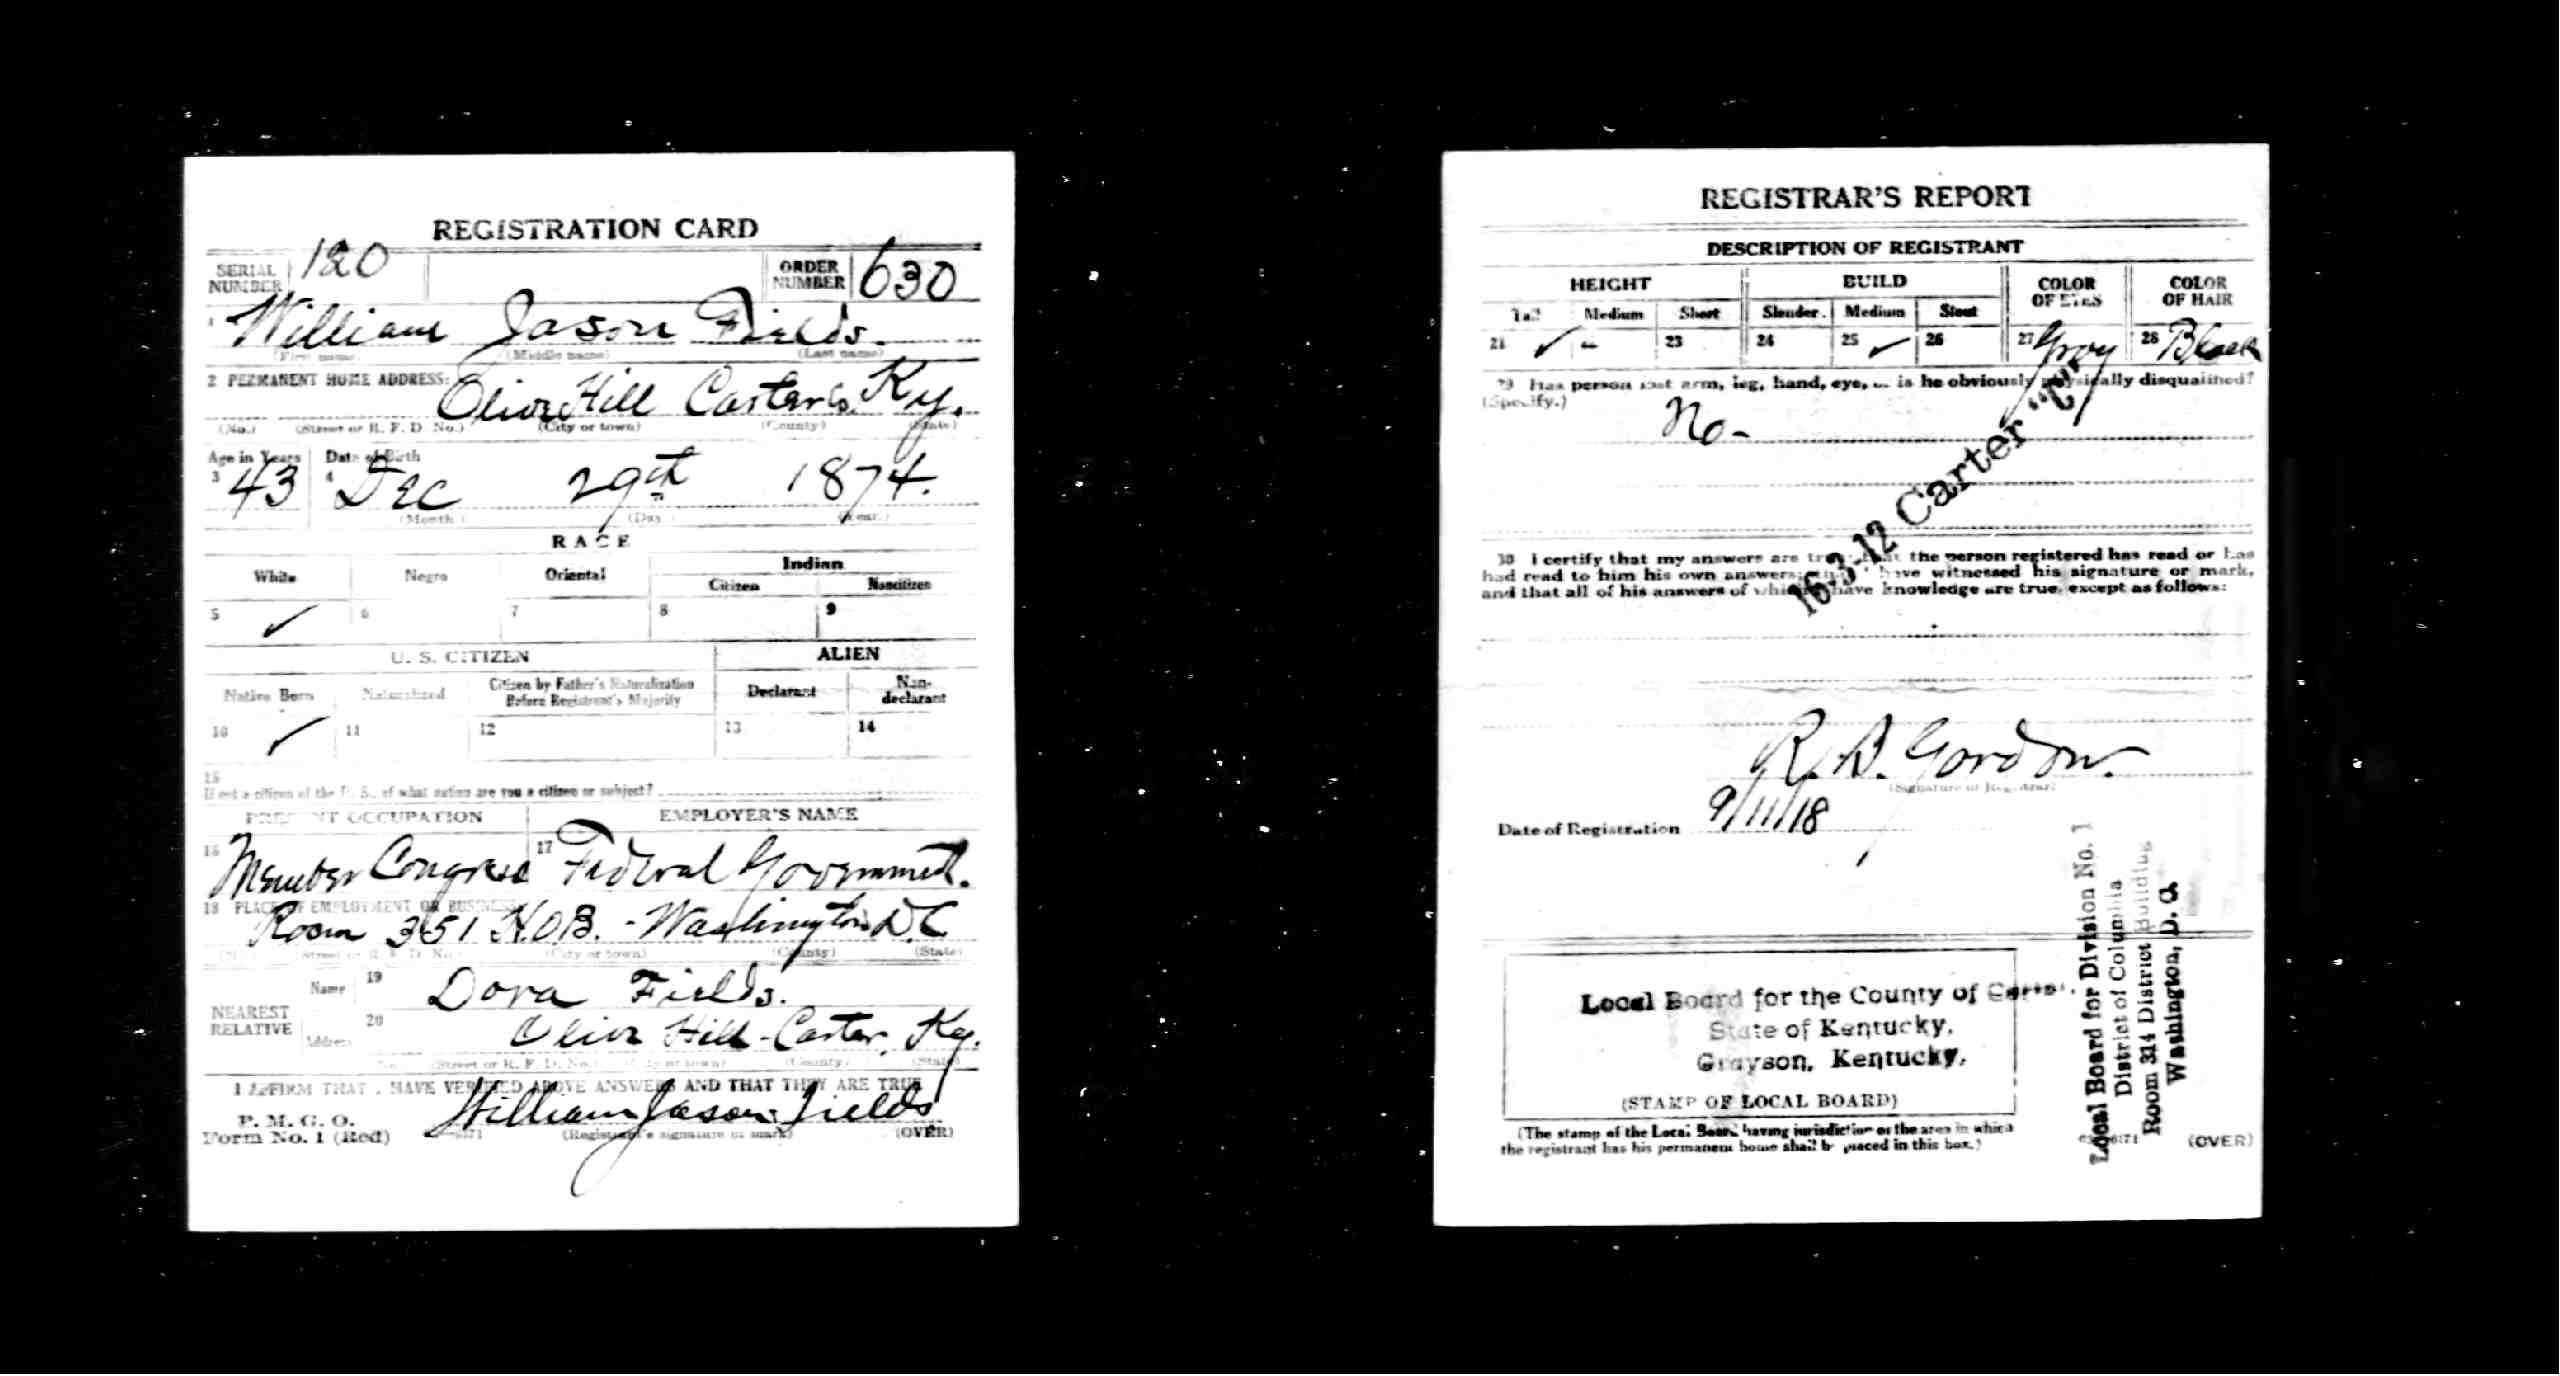 REGISTRATION CARD
SERIAL NUMBER 120 ORDER NUMBER 630
1 William Jason Fields.
(First name) (Middle name) (Last name)
2 PERMANENT HOME ADDRESS:
Olive Hill Carter Co. Ky.
(No.) (Street or R. F. D. No.) (City or town) (County) (State)
Age in Years Date of Birth
3 43 4 Dec 29th 1874.
(Month) (Day) (Year)
RACE
White Negro Oriental Indian
Citizen Noncitizen
5 ✓ 6 7 8 9
U. S. CITIZEN ALIEN
Native Born Naturalized Citizen by Father's Naturalization Before Registrant's Majority Declarant Non-declarant
10 ✓ 11 12 13 14
15
If not a citizen of the U. S., of what nation are you a citizen or subject?
PRESENT OCCUPATION EMPLOYER'S NAME
16 Member Congress 17 Federal Government.
18 PLACE OF EMPLOYMENT OR BUSINESS
Room 351 H.O.B. - Washington D.C
(No.) (Street or R. F. D. No.) (City or town) (County) (State)
NEAREST RELATIVE
Name 19 Dora Fields.
Address 20 Olive Hill - Carter, Ky.
(No.) (Street or R. F. D. No.) (City or town) (County) (State)
I AFFIRM THAT I HAVE VERIFIED ABOVE ANSWERS AND THAT THEY ARE TRUE
P. M. G. O.
Form No. 1 (Red) William Jason Fields
(Registrant's signature or mark) (OVER)
REGISTRAR'S REPORT
DESCRIPTION OF REGISTRANT
HEIGHT BUILD COLOR OF EYES COLOR OF HAIR
Tall Medium Short Slender Medium Stout
21 ✓ 23 24 25 ✓ 26 27 Gray 28 Black
29 Has person lost arm, leg, hand, eye, or is he obviously physically disqualified?
(Specify.)
No -
16-3-12 Carter
30 I certify that my answers are true; that the person registered has read or has
had read to him his own answers; that I have witnessed his signature or mark,
and that all of his answers of which I have knowledge are true, except as follows:
R. B. Gordon.
(Signature of Registrar)
Date of Registration 9/11/18
Local Board for the County of Carter.
State of Kentucky,
Grayson, Kentucky,
(STAMP OF LOCAL BOARD)
(The stamp of the Local Board having jurisdiction of the area in which
the registrant has his permanent home shall be placed in this box.)
Local Board for Division No. 1
District of Columbia
Room 314 District Building
Washington, D. C.
(OVER)